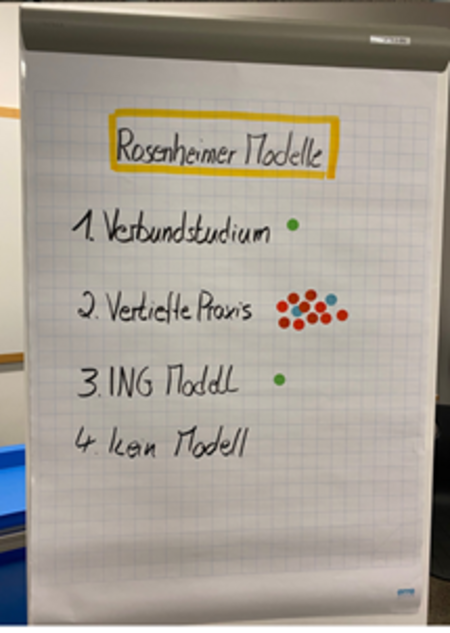 Rosenheimer Modelle
1. Verbundstudium
2. Vertiefte Praxis
3. ING Modell
4. kein Modell